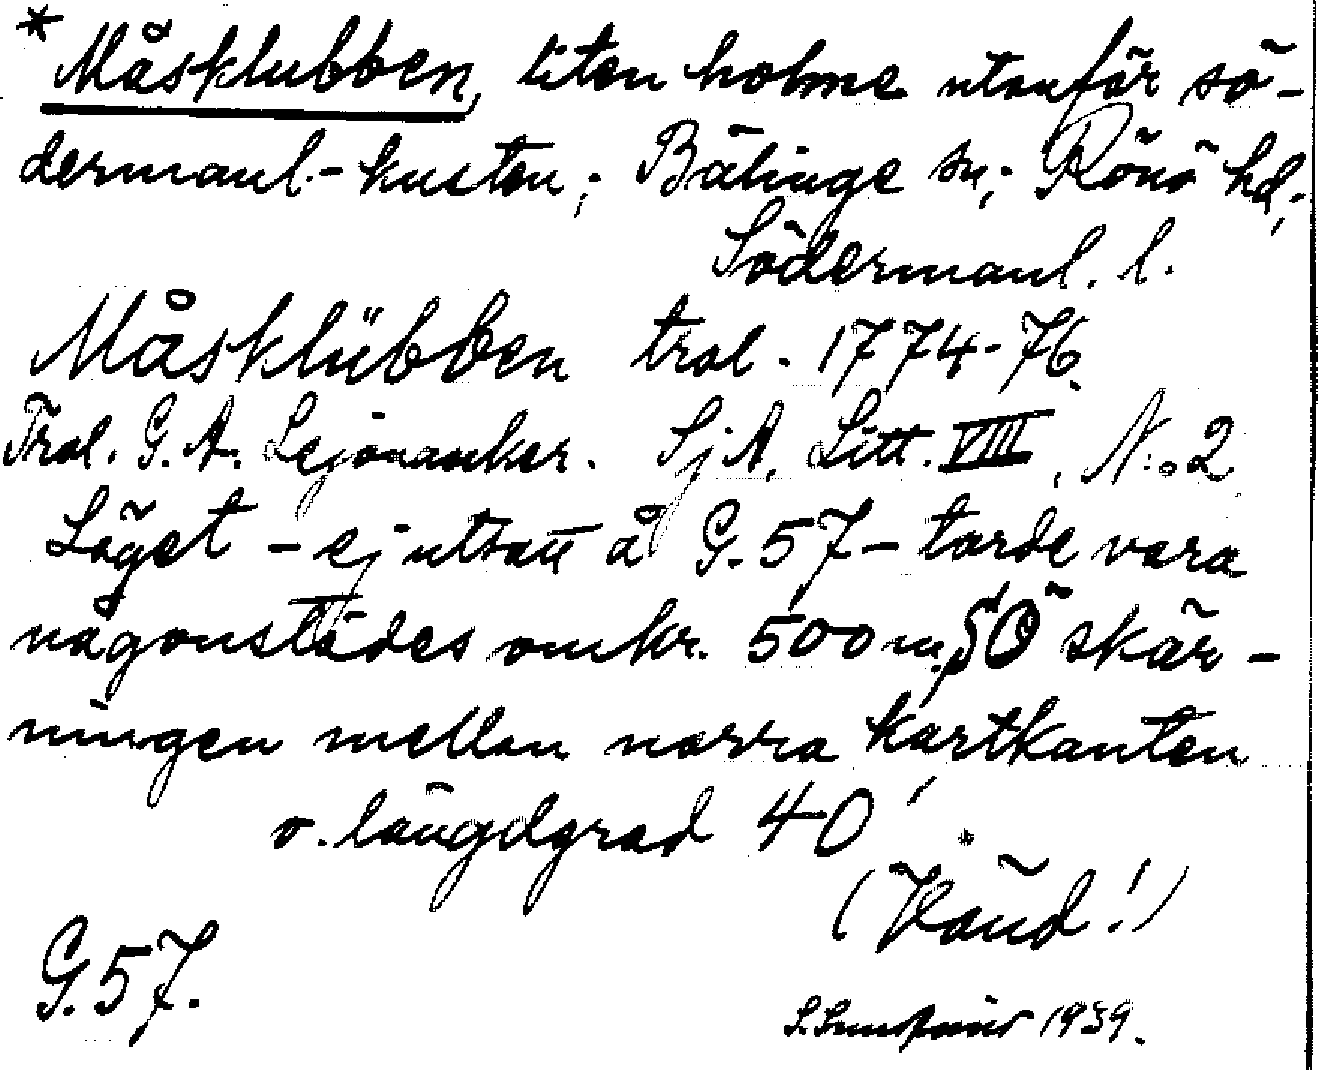 *Måsklubben, liten holme utanför sö-
dermanl.-kusten; Bälinge sn; Rönö hd;
Södermanl. l.
Måsklübben trol. 1774-76.
Trol. G. A. Lejonanker. SjA. Litt. VIII, N:o 2
Läget – ej utsatt å G. 57 – torde vara
någonstädes omkr. 500 m SÖ skär-
ningen mellan norra kartkanten
o. längdgrad 40'.
(Vänd!)
G. 57.
1939.